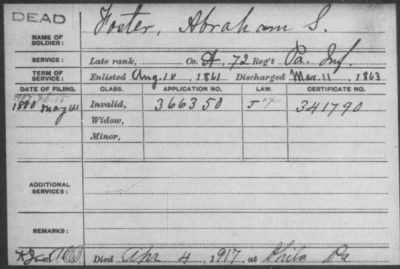 DEAD
NAME OF SOLDIER: Foster, Abraham S.
SERVICE: Late rank, Co. 72 Reg't Pa. Inf.
TERM OF SERVICE: Enlisted Aug. 1861 Discharged Mar. 11 1863
DATE OF FILING. CLASS. APPLICATION NO. LAW. CERTIFICATE NO.
1880 May Invalid, 366350 341790
Widow,
Minor,
ADDITIONAL SERVICES:
REMARKS:
Died Apr 4 1917, at Phila Pa